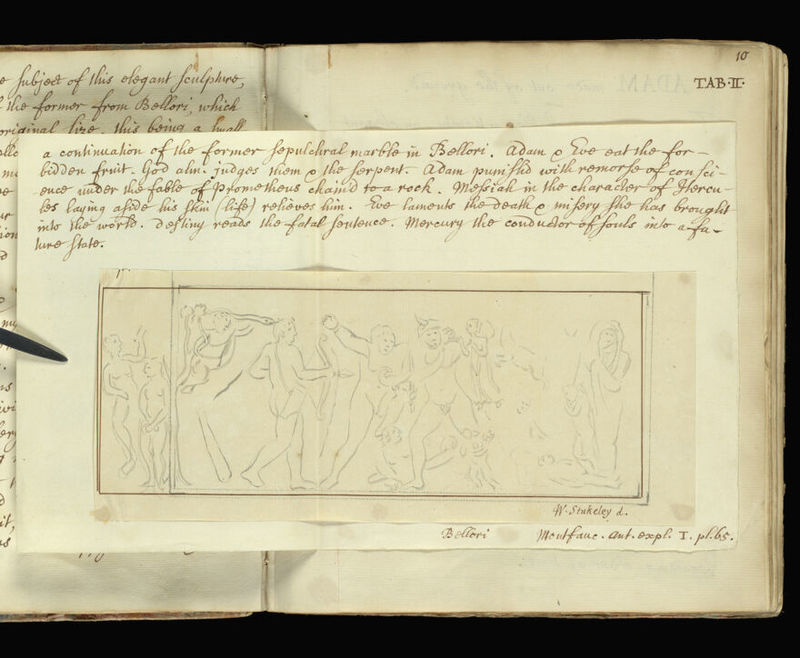 subject of this elegant sculpture,
the former from Bellori, which
original size. this being a small
10
TAB·II·
a continuation of the former sepulchral marble in Bellori. Adam & Eve eat the for-
bidden fruit. God alm. judges them & the serpent. Adam punishd with remorse of consci-
ence under the fable of Prometheus chain'd to a rock. Messiah in the character of Hercu-
les laying aside his skin (life) relieves him. Eve laments the death & misery she has brought
into the world. destiny reads the fatal sentence. Mercury the conductor of souls into a fu-
ture state.
W. Stukeley d.
Bellori Montfauc. ant. expl. I. pl. 65.